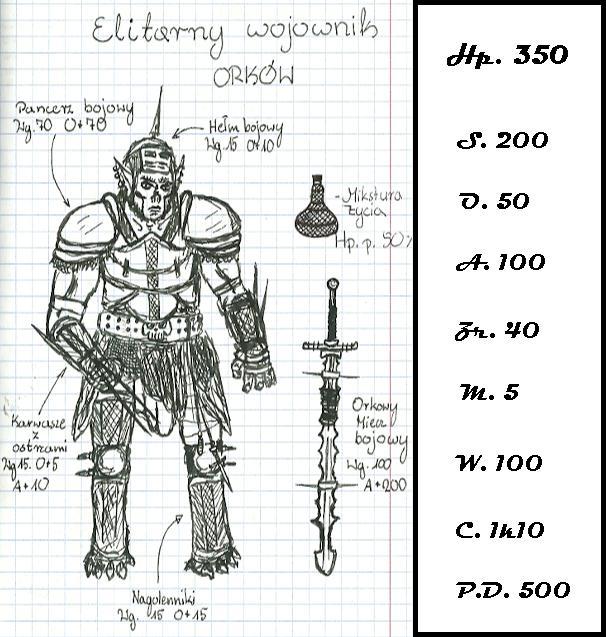 Elitarny wojownik
ORKÓW
Pancerz bojowy
Wg. 70 O+70
Hełm bojowy
Wg. 15 O+10
- Mikstura
Życia
Hp. p. 50%
Karwasze
z
ostrzami
Wg 15. O+5
A+10
Orkowy
Miecz
bojowy
Wg. 100
A+200
Nagolenniki
Wg. 15 O+15
Hp. 350
S. 200
O. 50
A. 100
Zr. 40
M. 5
W. 100
C. 1k10
P.D. 500